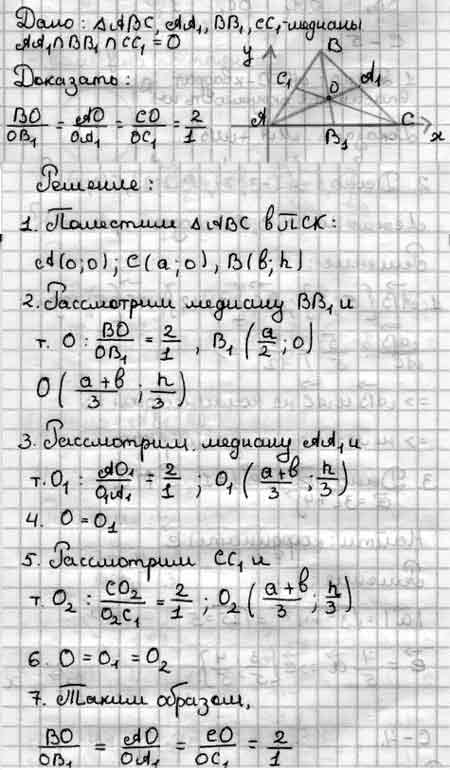 Дано: △ABC, AA₁, BB₁, CC₁ - медианы
AA₁ ∩ BB₁ ∩ CC₁ = O
Доказать:
BO/OB₁ = AO/OA₁ = CO/OC₁ = 2/1
y
B
C₁
A₁
O
A
B₁
C
x
Решение:
1. Поместим △ABC в ПСК:
A(0;0); C(a;0), B(b;h)
2. Рассмотрим медиану BB₁ и
т. O: BO/OB₁ = 2/1, B₁(a/2; 0)
O((a+b)/3; h/3)
3. Рассмотрим медиану AA₁ и
т. O₁: AO₁/O₁A₁ = 2/1; O₁((a+b)/3; h/3)
4. O = O₁
5. Рассмотрим CC₁ и
т. O₂: CO₂/O₂C₁ = 2/1; O₂((a+b)/3; h/3)
6. O = O₁ = O₂
7. Таким образом,
BO/OB₁ = AO/OA₁ = CO/OC₁ = 2/1